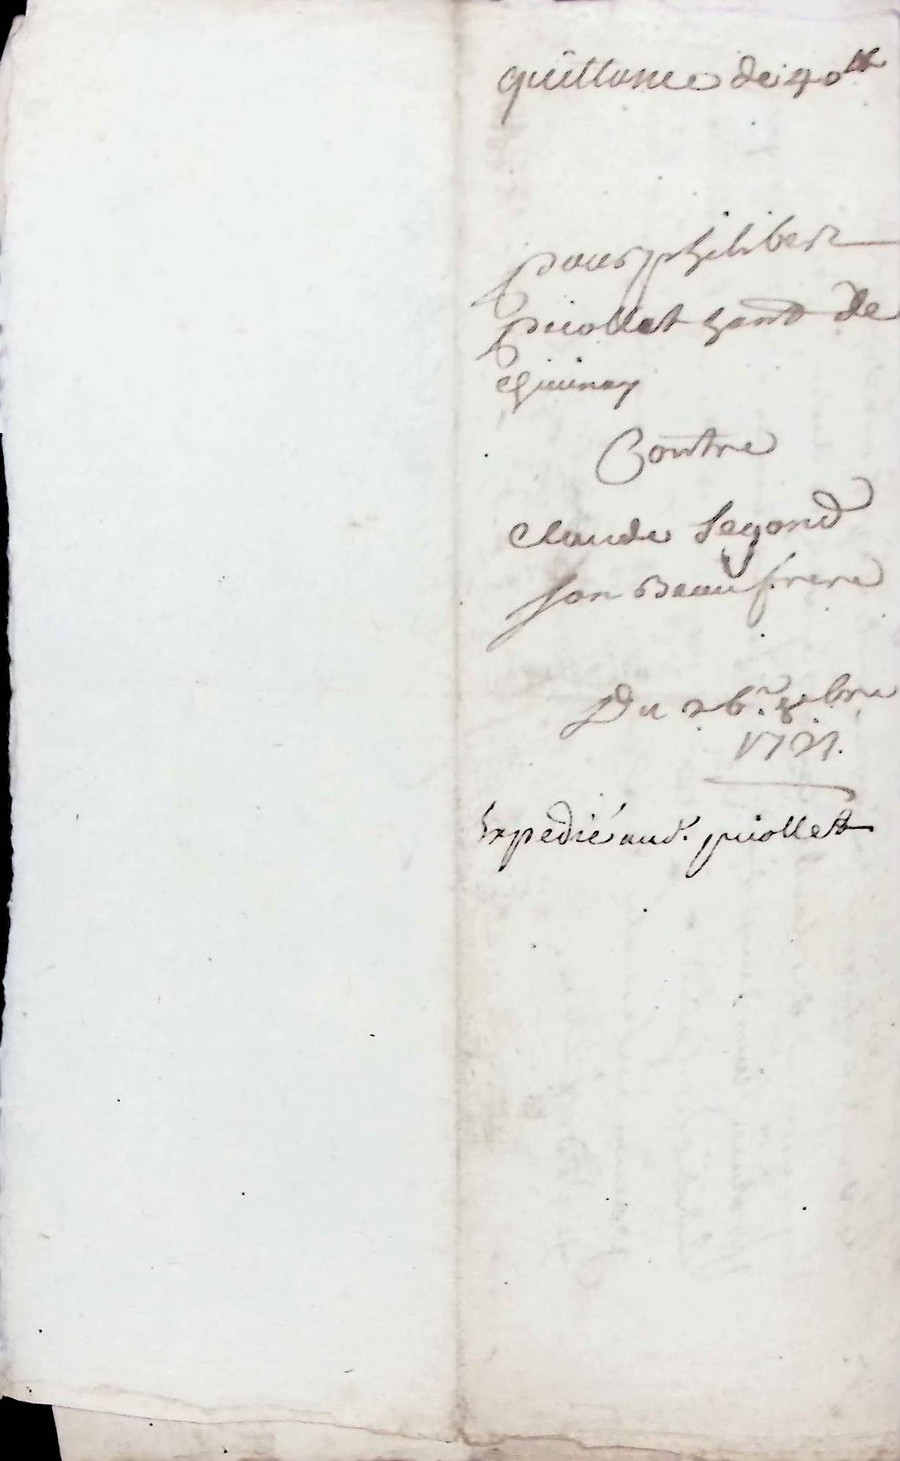 quittance de 40ᵗᵗ
pour philibert
piollet gant de
Contre
claude Segond
son Beaufrere
Du 26.ᵉ 8bre
Expedié aud. piollet